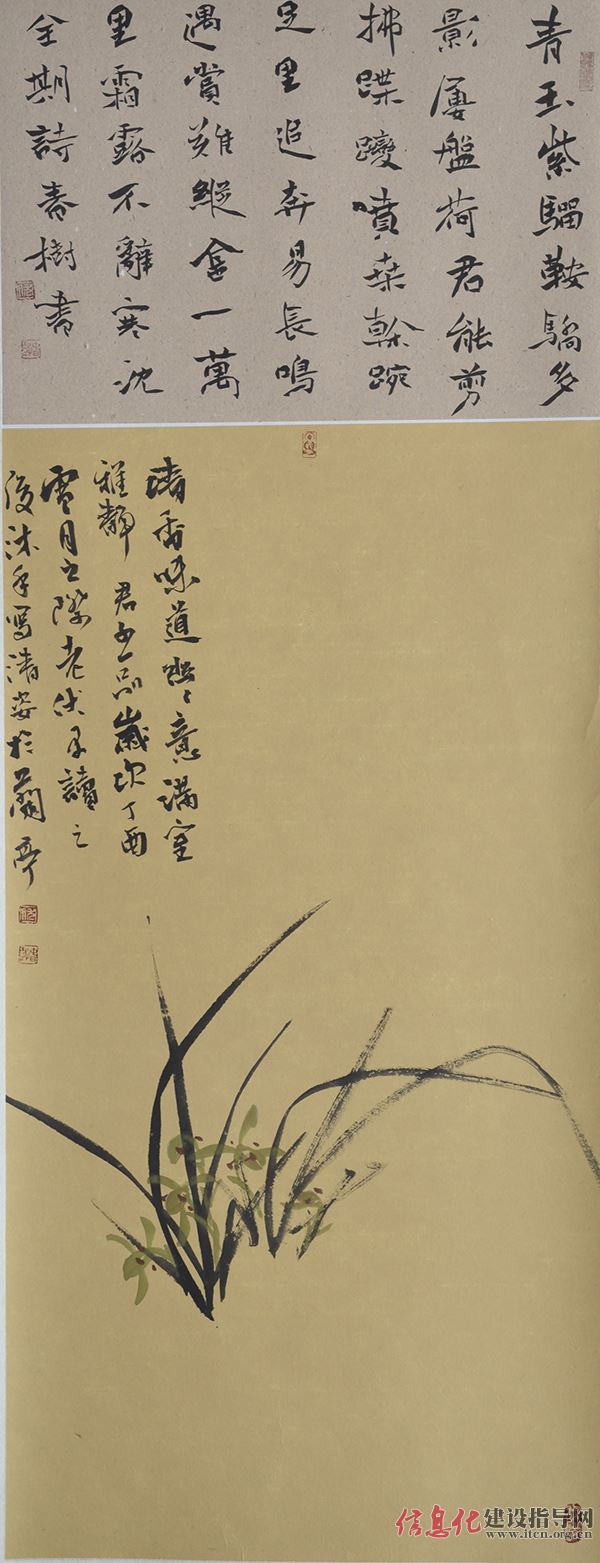 青玉紫騮鞍驕多
影屢盤荷君能剪
拂蹀躞噴桑幹踠
足里追奔易長鳴
遇賞難縱金一萬
里霜露不辭寒沈
全期詩春樹書
清香味道意滿室
雅靜君子品歲次丁酉
雪月之際老伏子讀之
後沐手寫清姿於蘭亭
信息化建设指导网
www.itcn.org.cn